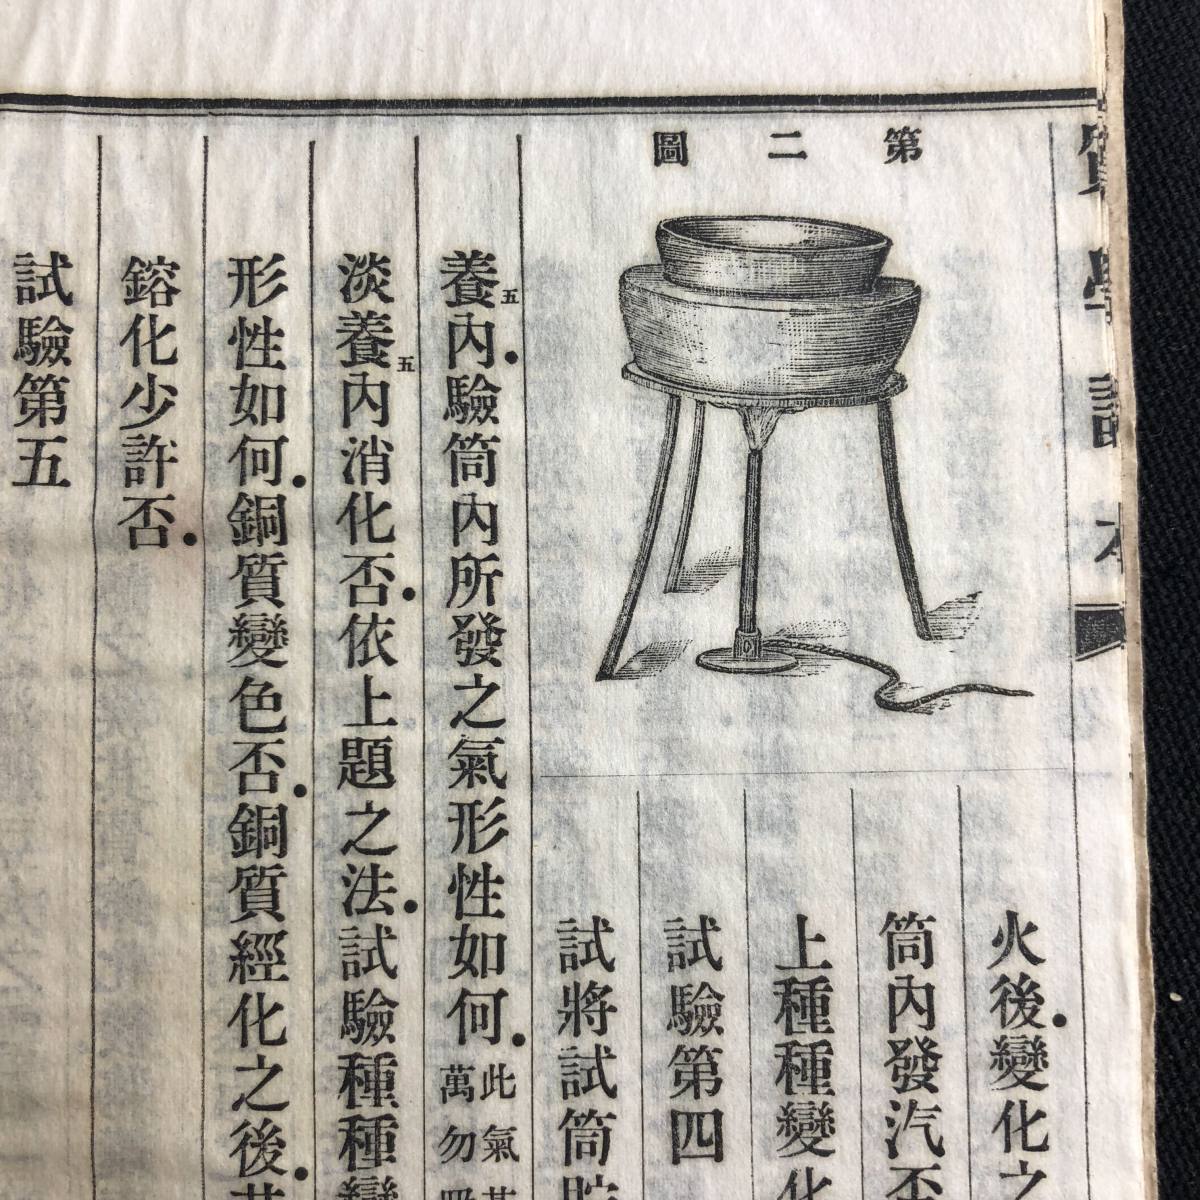 質學課本
第二圖
火後變化之
筒內發汽否
上種種變化
試驗第四
試將試筒貯
養五內驗筒內所發之氣形性如何此氣萬勿
淡養五內消化否依上題之法試驗種種變
形性如何銅質變色否銅質經化之後其
鎔化少許否
試驗第五